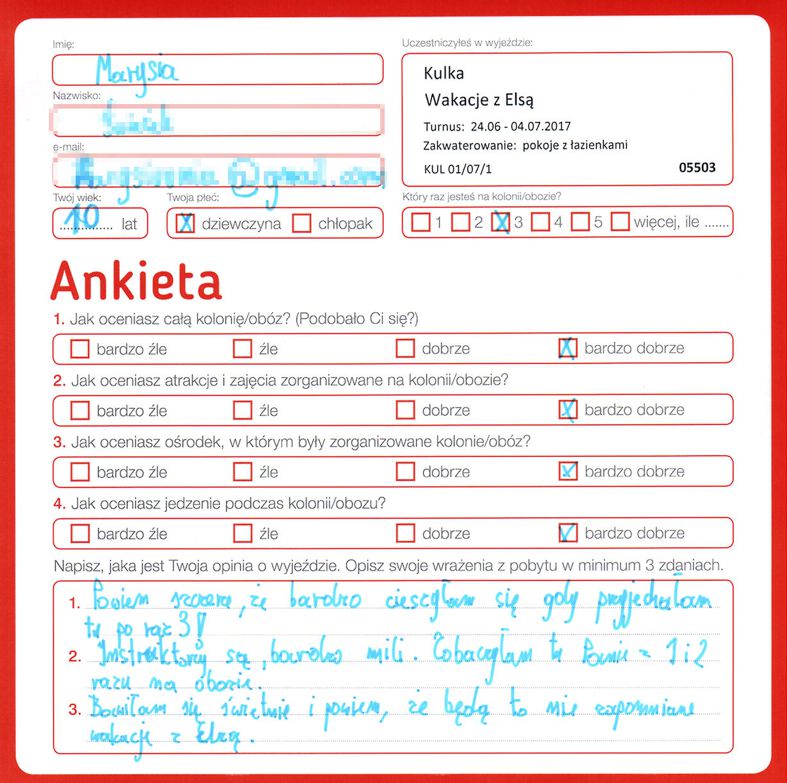 Imię:
Marysia
Nazwisko:
e-mail:
@gmail.com
Twój wiek:
10 lat
Twoja płeć:
dziewczyna chłopak
Uczestniczyłeś w wyjeździe:
Kulka
Wakacje z Elsą
Turnus: 24.06 - 04.07.2017
Zakwaterowanie: pokoje z łazienkami
KUL 01/07/1 05503
Który raz jesteś na kolonii/obozie?
1 2 3 4 5 więcej, ile .......
Ankieta
1. Jak oceniasz całą kolonię/obóz? (Podobało Ci się?)
bardzo źle źle dobrze bardzo dobrze
2. Jak oceniasz atrakcje i zajęcia zorganizowane na kolonii/obozie?
bardzo źle źle dobrze bardzo dobrze
3. Jak oceniasz ośrodek, w którym były zorganizowane kolonie/obóz?
bardzo źle źle dobrze bardzo dobrze
4. Jak oceniasz jedzenie podczas kolonii/obozu?
bardzo źle źle dobrze bardzo dobrze
Napisz, jaka jest Twoja opinia o wyjeździe. Opisz swoje wrażenia z pobytu w minimum 3 zdaniach.
1. Powiem szczerze, że bardzo cieszyłam się gdy przyjechałam
tu po raz 3!
2. Instruktorzy są bardzo mili. Zobaczyłam tu Panie z 1 i 2
razu na obozie.
3. Bawiłam się świetnie i powiem, że będą to nie zapomniane
wakacje z Elsą.